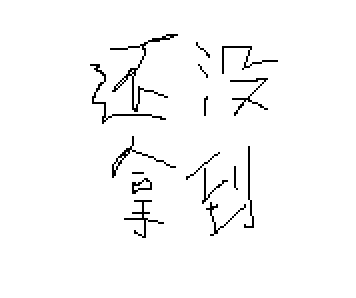 还没
拿到